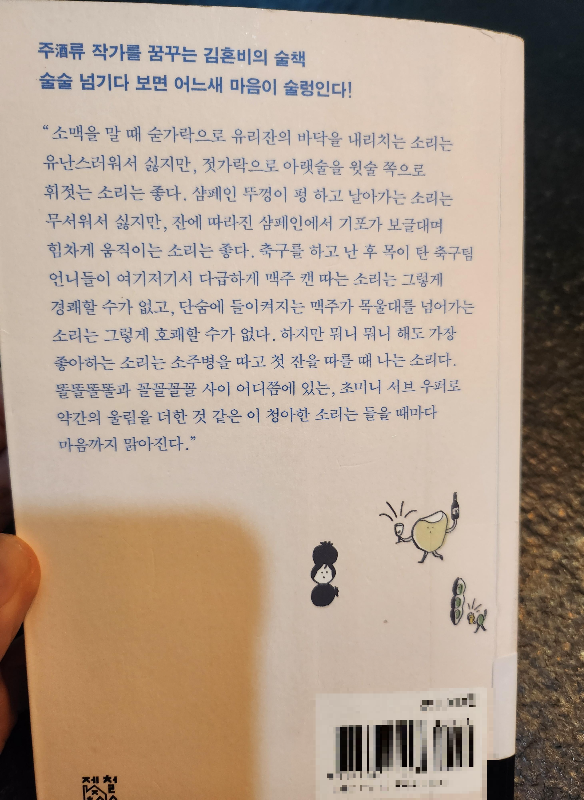 주酒류 작가를 꿈꾸는 김혼비의 술책
술술 넘기다 보면 어느새 마음이 술렁인다!
“소맥을 말 때 숟가락으로 유리잔의 바닥을 내리치는 소리는
유난스러워서 싫지만, 젓가락으로 아랫술을 윗술 쪽으로
휘젓는 소리는 좋다. 샴페인 뚜껑이 펑 하고 날아가는 소리는
무서워서 싫지만, 잔에 따라진 샴페인에서 기포가 보글대며
힘차게 움직이는 소리는 좋다. 축구를 하고 난 후 목이 탄 축구팀
언니들이 여기저기서 다급하게 맥주 캔 따는 소리는 그렇게
경쾌할 수가 없고, 단숨에 들이켜지는 맥주가 목울대를 넘어가는
소리는 그렇게 호쾌할 수가 없다. 하지만 뭐니 뭐니 해도 가장
좋아하는 소리는 소주병을 따고 첫 잔을 따를 때 나는 소리다.
똘똘똘똘과 꼴꼴꼴꼴 사이 어디쯤에 있는, 초미니 서브 우퍼로
약간의 울림을 더한 것 같은 이 청아한 소리는 들을 때마다
마음까지 맑아진다.”
제철